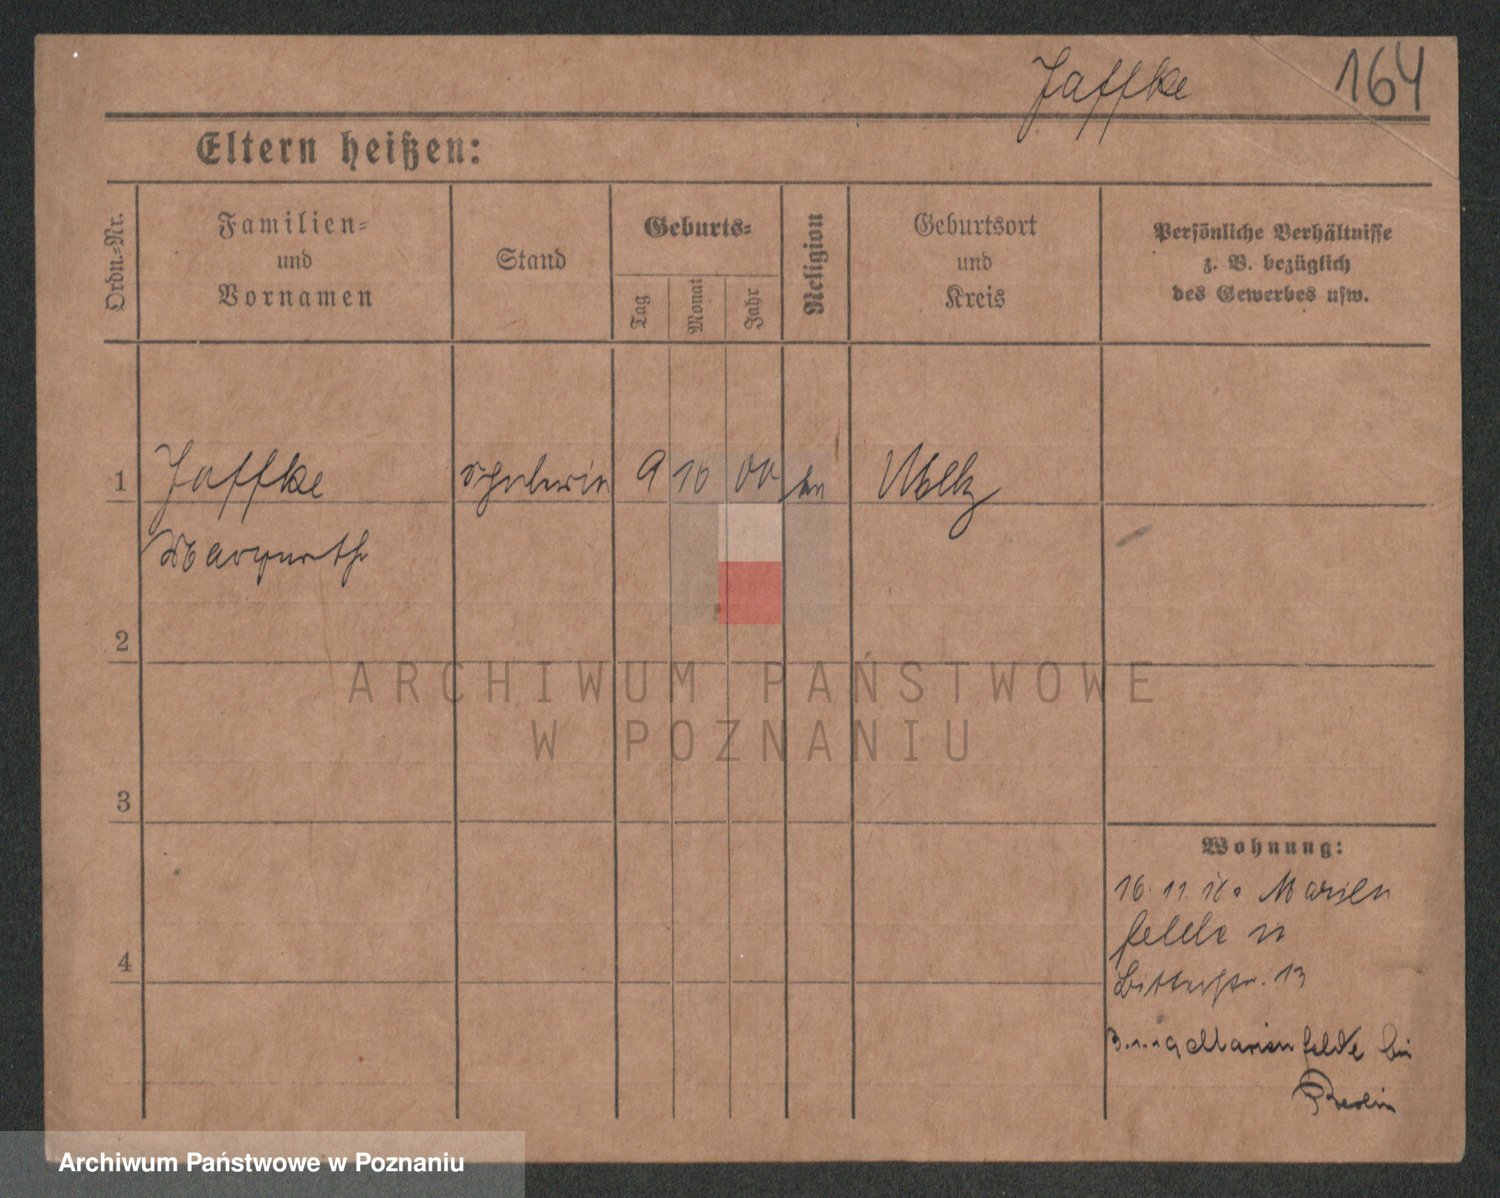 Jaffke 164
Eltern heißen:
Ordn.-Nr.
Familien-
und
Vornamen
Stand
Geburts-
Tag
Monat
Jahr
Religion
Geburtsort
und
Kreis
Persönliche Verhältnisse
z. B. bezüglich
des Gewerbes usw.
1 Jaffke Schülerin 9 10 00
Margarethe
2
3
4
ARCHIWUM PAŃSTWOWE
W POZNANIU
Wohnung:
16. 11. Marien
felde
13
Marienfelde bei
Berlin
Archiwum Państwowe w Poznaniu